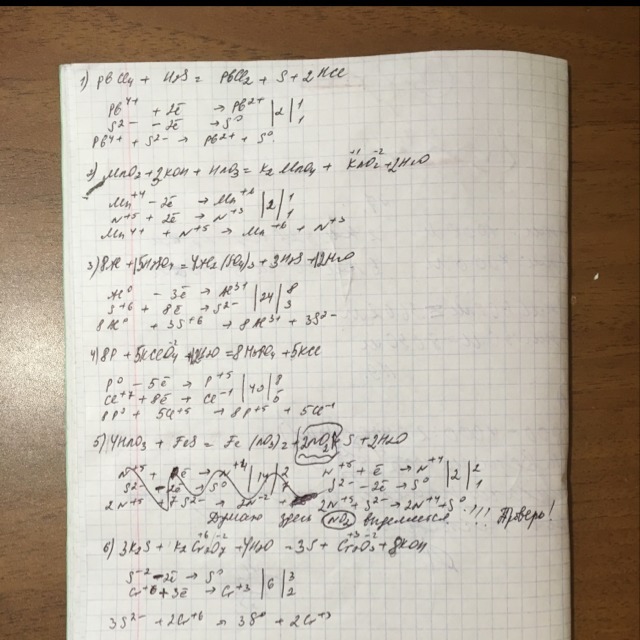 1) PbCl₄ + H₂S = PbCl₂ + S + 2HCl
Pb⁴⁺ + 2ē → Pb²⁺ |2| 1
S²⁻ - 2ē → S⁰ 1
Pb⁴⁺ + S²⁻ → Pb²⁺ + S⁰
2) MnO₂ + 2KOH + HNO₃ = K₂MnO₄ + KNO₂ + 2H₂O
Mn⁺⁴ - 2ē → Mn⁺⁶ |2| 1
N⁺⁵ + 2ē → N⁺³ 1
Mn⁺⁴ + N⁺⁵ → Mn⁺⁶ + N⁺³
3) 8Al + 15H₂SO₄ = 4Al₂(SO₄)₃ + 3H₂S + 12H₂O
Al⁰ - 3ē → Al³⁺ |24| 8
S⁺⁶ + 8ē → S²⁻ 3
8Al⁰ + 3S⁺⁶ → 8Al³⁺ + 3S²⁻
4) 8P + 5KClO₄ + 12H₂O = 8H₃PO₄ + 5KCl
P⁰ - 5ē → P⁺⁵ |40| 8
Cl⁺⁷ + 8ē → Cl⁻¹ 5
8P⁰ + 5Cl⁺⁵ → 8P⁺⁵ + 5Cl⁻¹
5) 4HNO₃ + FeS = Fe(NO₃)₂ + 2NO₂ + S + 2H₂O
N⁺⁵ + ē → N⁺⁴ |2| 2
S²⁻ - 2ē → S⁰ 1
2N⁺⁵ + S²⁻ → 2N⁺⁴ + S⁰
Думаю здесь NO₂ выделяется !!! Проверь!
6) 3K₂S + K₂Cr₂O₇ + 4H₂O = 3S + Cr₂O₃ + 8KOH
S⁻² - 2ē → S⁰ |6| 3
Cr⁺⁶ + 3ē → Cr⁺³ 2
3S²⁻ + 2Cr⁺⁶ → 3S⁰ + 2Cr⁺³